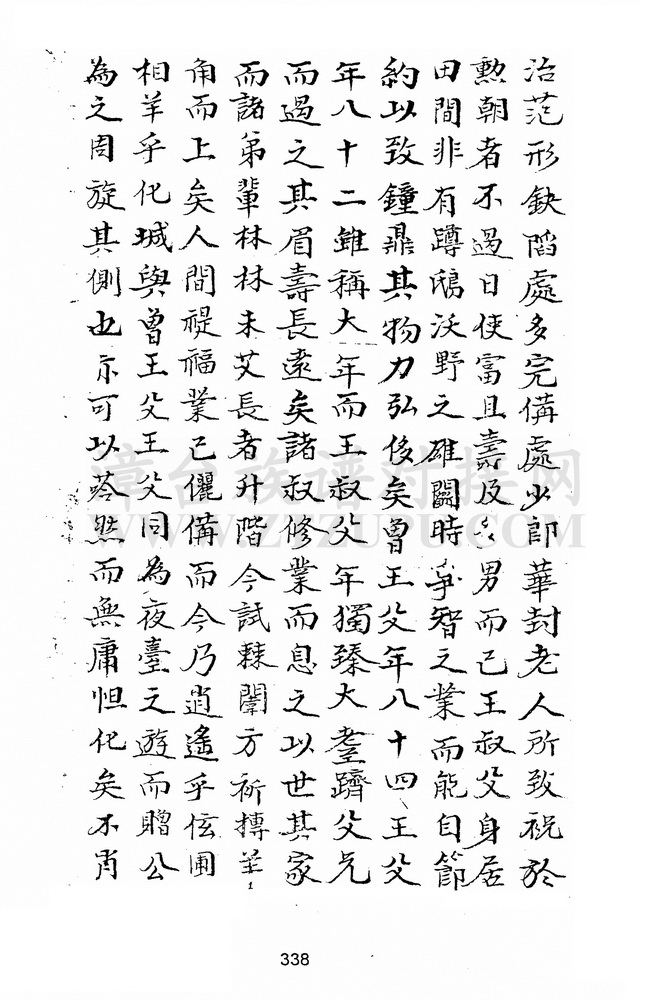 治范形缺陷處多完備處少即華封老人所致祝於
勲朝者不過日使富且壽及多男而已王叔父身居
田間非有蹲鴟沃野之雄鬬時爭智之業而能自節
約以致鐘鼎其物力弘侈矣曾王父年八十四王父
年八十二雖稱大年而王叔父年獨臻大耋躋父兄
而過之其眉壽長遠矣諸叔修業而息之以世其家
而諸弟輩林林未艾長者升階今試棘闈方祈摶羊
角而上矣人間禔福業已儷備而今乃逍遙乎佉圃
相羊乎化城與曾王父王父同為夜臺之遊而贈公
為之周旋其側也亦可以嗒然而無庸怛化矣不肖
漳台族譜對接網
WWW.ZTZUPU.COM
338